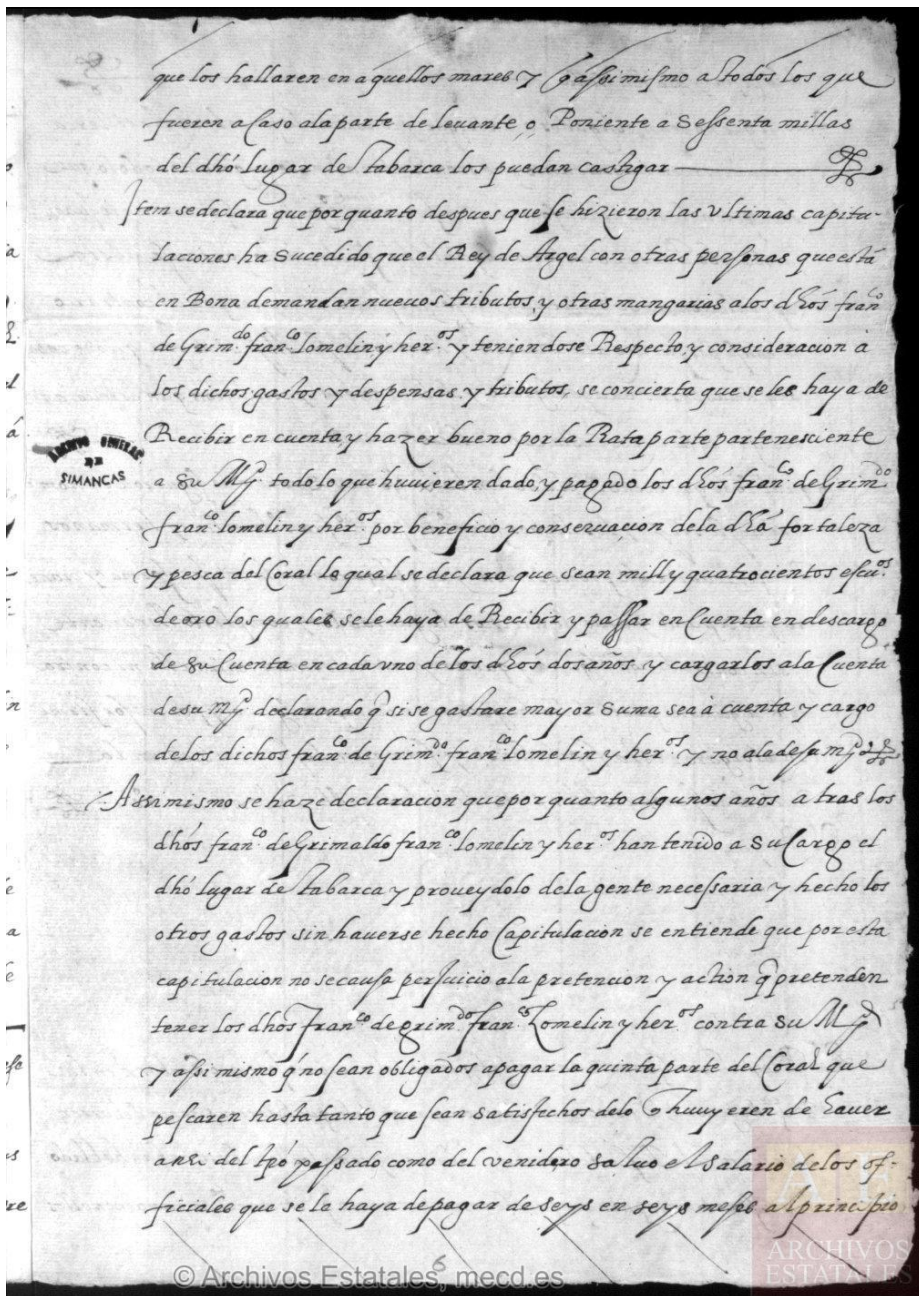 que los hallaren en aquellos mares y assimismo a todos los que
fueren a caso ala parte de levante o Poniente a sessenta millas
del dho lugar de tabarca los puedan castigar
Item se declara que por quanto despues que se hizieron las vltimas capitu-
laciones ha sucedido que el Rey de Argel con otras personas que está
en Bona demandan nuevos tributos, y otras mangarias a los dhos fran.co
de Grim.do fran.co lomelin y her.os y teniendose Respecto, y consideracion à
los dichos gastos y despensas, y tributos, se concierta que se les haya de
Recibir en cuenta, y hazer bueno por la Rata parte partenesciente
ARCHIVO GENERAL
DE
SIMANCAS
a su Mg.d todo lo que huuieren dado, y pagado los dhos fran.co de Grim.do
fran.co lomelin y her.os por beneficio y conseruacion dela dha fortaleza
y pesca del Coral lo qual se declara que sean mill y quatrocientos escu.os
de oro los quales se le haya de Recibir y passar en Cuenta en descargo
de su Cuenta en cada vno de los dhos dos años y cargarlos ala Cuenta
de su mg.d declarando q̃ si se gastare mayor suma sea à cuenta y cargo
de los dichos fran.co de Grim.do fran.co lomelin y her.os y no ala de su mg.d
Assimismo se haze declaracion que por quanto algunos años a tras los
dhós fran.co de Grimaldo fran.co lomelin y her.os han tenido a su Cargo el
dhó lugar de tabarca y proueydolo dela gente necessaria y hecho los
otros gastos sin hauerse hecho Capitulacion se entiende que por esta
capitulacion no se causa perjuicio ala pretencion y action q̃ pretenden
tener los dhos fran.co de grim.do fran.co Lomelin y her.os contra su Mg.d
y assimismo q̃ no sean obligados apagar la quinta parte del Coral que
pescaren hasta tanto que sean satisfechos delo q̃ huuyeren de hauer
ansi del tpó passado como del venidero saluo el salario de los of-
ficiales que se le haya de pagar de seys en seys meses al principio
6
© Archivos Estatales, mecd.es
AE
ARCHIVOS
ESTATALES